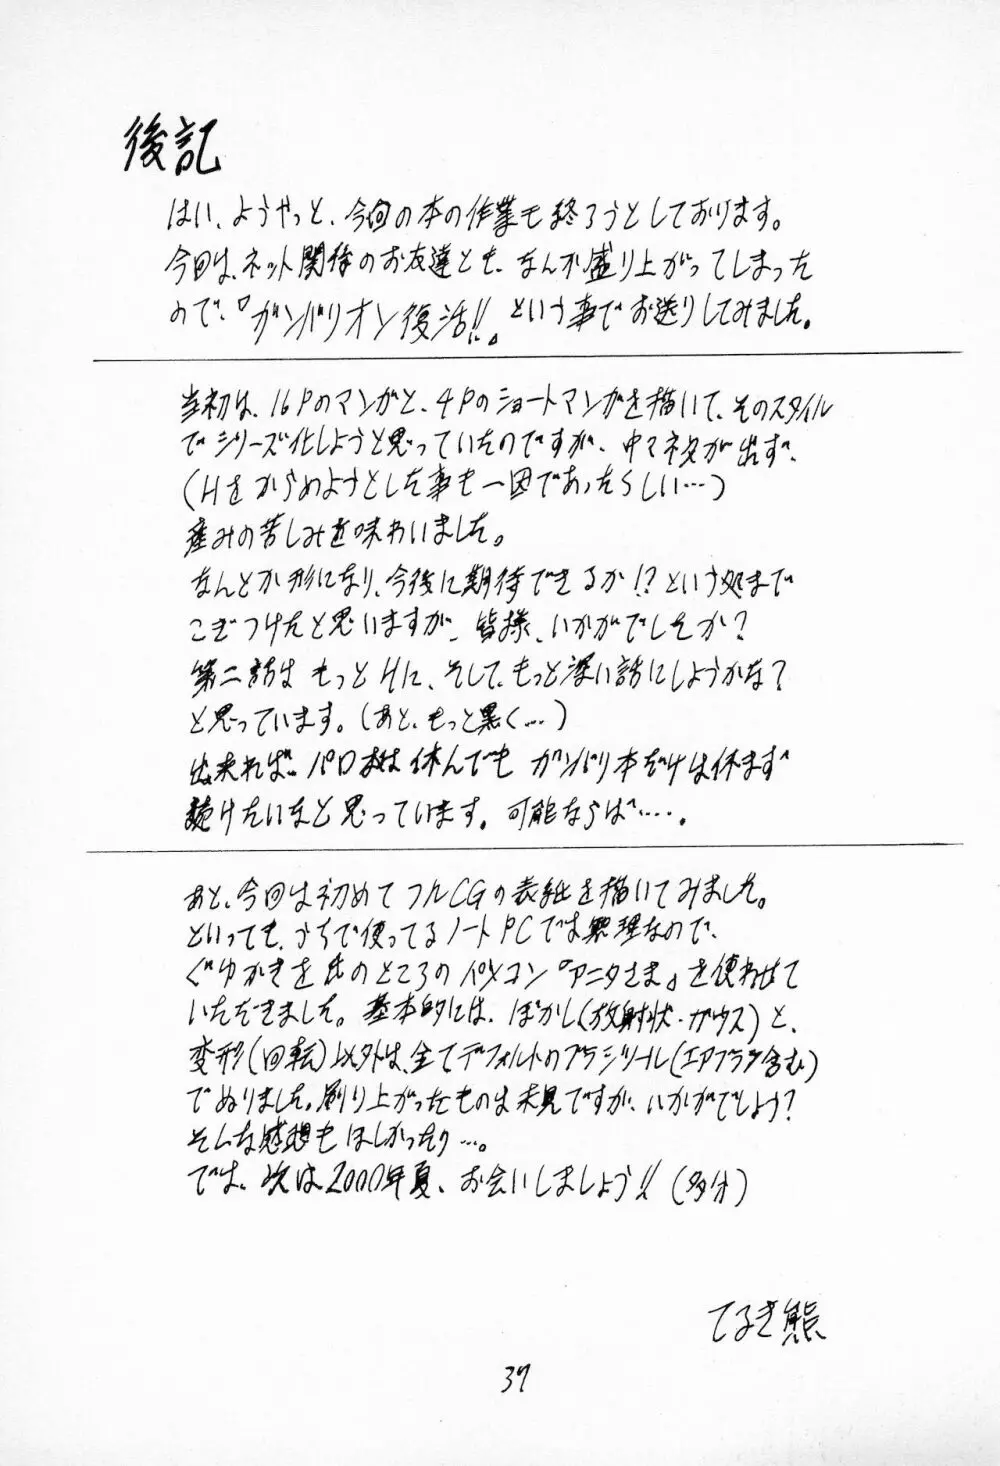 後記
はい、ようやっと、今回の本の作業も終ろうとしております。
今回は、ネット関係のお友達とも、なんか盛り上がってしまった
ので、『ガンバリオン復活!!』という事でお送りしてみました。
当初は、16Pのマンガと、4Pのショートマンガを描いて、そのスタイル
でシリーズ化しようと思っていたのですが、中々ネタが出ず、
(Hをからめようとした事も一因であったらしい…)
産みの苦しみを味わいました。
なんとか形になり、今後に期待できるか!?という処まで
こぎつけたと思いますが、皆様、いかがでしたか?
第二話はもっとHに、そして、もっと深い話にしようかな?
と思っています。(あと、もっと黒く…)
出来れば、パロ本は休んでもガンバリ本だけは休まず
続けたいなと思っています。可能ならば…。
あと、今回は初めてフルCGの表紙を描いてみました。
といっても、うちで使ってるノートPCでは無理なので、
ぐゆかき を 氏のところのパソコン『アニタさま』を使わせて
いただきました。基本的には、ぼかし(放射状・ガウス)と、
変形(回転)以外は、全てデフォルトのブラシツール(エアブラシ含む)
でぬりました。刷り上がったものは未見ですが、いかがでしょう?
そんな感想もほしかったり…。
では、次は2000年夏、お会いしましょう!!(多分)
てるき熊
37